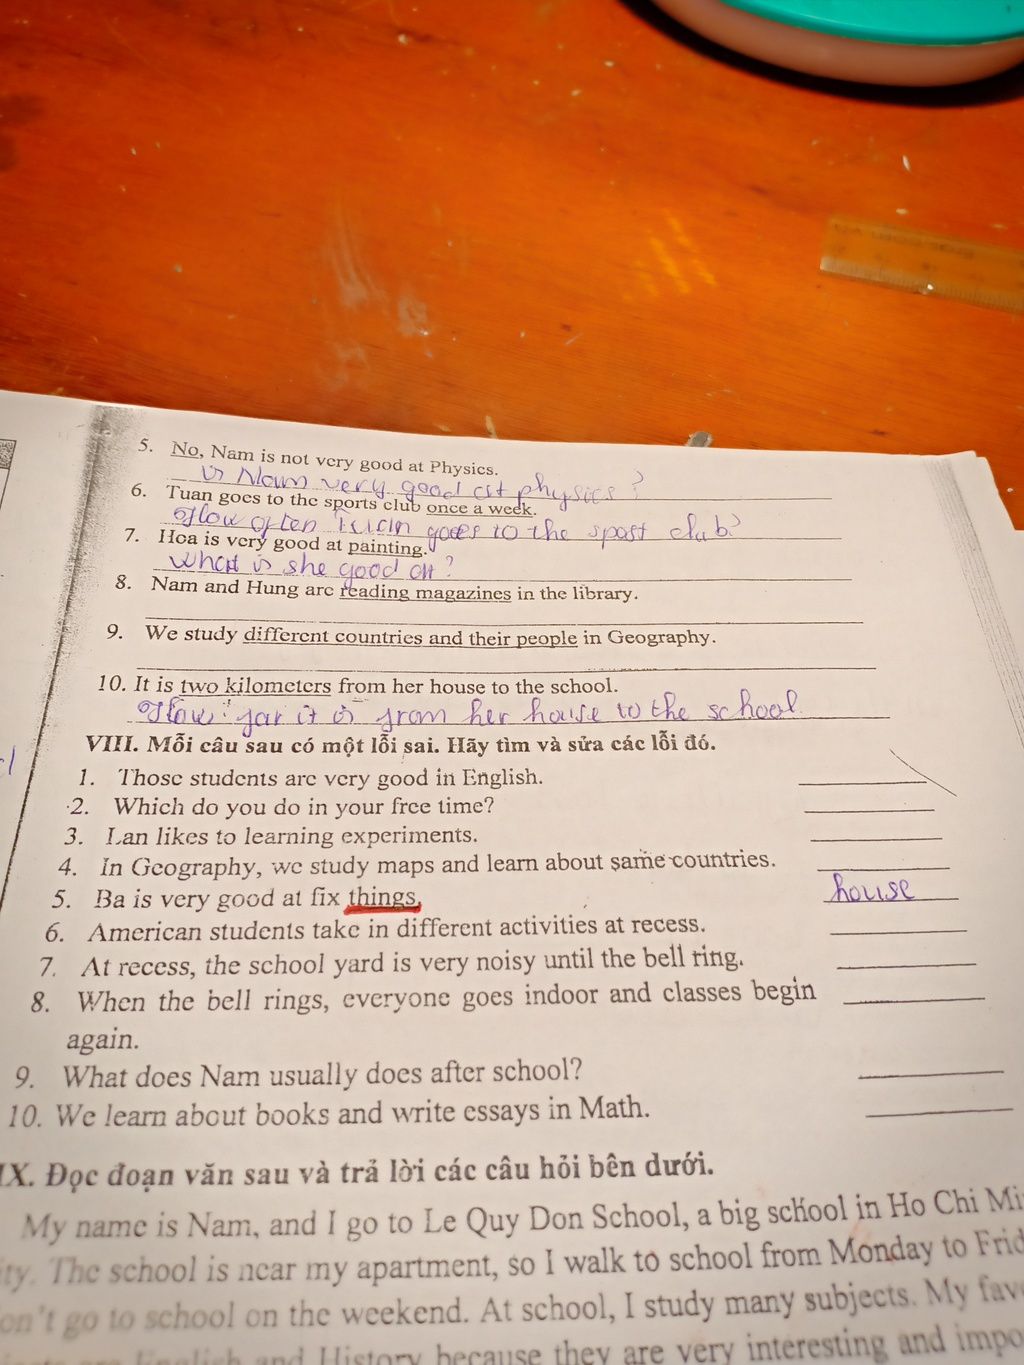 5. No, Nam is not very good at Physics.
is Nam very good at physics?
6. Tuan goes to the sports club once a week.
How often Tuan goes to the spost club?
7. Hoa is very good at painting.
What is she good at?
8. Nam and Hung are reading magazines in the library.
9. We study different countries and their people in Geography.
10. It is two kilometers from her house to the school.
How far it is from her house to the school
VIII. Mỗi câu sau có một lỗi sai. Hãy tìm và sửa các lỗi đó.
1. Those students are very good in English.
2. Which do you do in your free time?
3. Lan likes to learning experiments.
4. In Geography, we study maps and learn about same countries.
5. Ba is very good at fix things. house
6. American students take in different activities at recess.
7. At recess, the school yard is very noisy until the bell ring.
8. When the bell rings, everyone goes indoor and classes begin
again.
9. What does Nam usually does after school?
10. We learn about books and write essays in Math.
IX. Đọc đoạn văn sau và trả lời các câu hỏi bên dưới.
My name is Nam, and I go to Le Quy Don School, a big school in Ho Chi
The school is near my apartment, so I walk to school from Monday to
go to school on the weekend. At school, I study many subjects. My
English and History because they are very interesting and